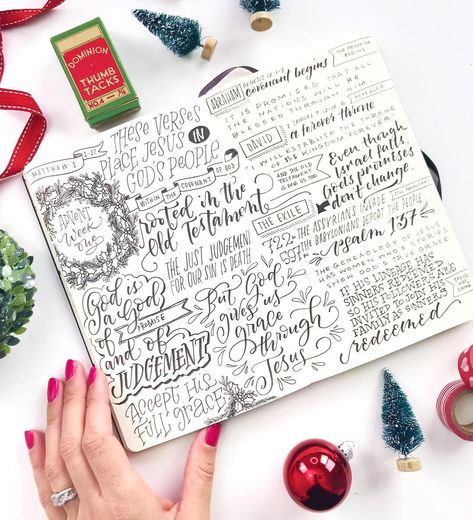 DOMINION
THUMB
TACKS
NO. 4
MATTHEW 1:1-17
ADVENT
Week
one
THESE VERSES
PLACE JESUS IN
GOD'S PEOPLE
WITHIN THE COVENANT OF GOD
rooted in the
Old Testament
THE JUST JUDGEMENT
FOR OUR SIN IS DEATH
God is
a God
of
PROMISE
and of
JUDGEMENT
But God
gives us
grace
through
Jesus
Accept His
full grace
THE PROMISE
BEGINS
ABRAHAM
GENESIS 12:1-3
covenant begins
IT IS PROMISED THAT ALL
THE NATIONS WILL BE
BLESSED THROUGH HIM
DAVID
a forever throne
WILL ESTABLISH THE THRONE
OF HIS KINGDOM FOREVER.
AND THE OLD
TESTAMENT
IS FOR US TOO
Even though
Israel fails,
God's promises
don't change.
THE EXILE
722
THE ASSYRIANS INVADE
THE BABYLONIANS DEPORT THE PEOPLE
Psalm 1:37
THE GENEALOGY OF JESUS
SHOW GOD'S TRUE GRACE
HIS LINEAGE HAS
SINNERS REDEEMED
INVITED TO JOIN HIS
FAMILY AS SINNERS
redeemed